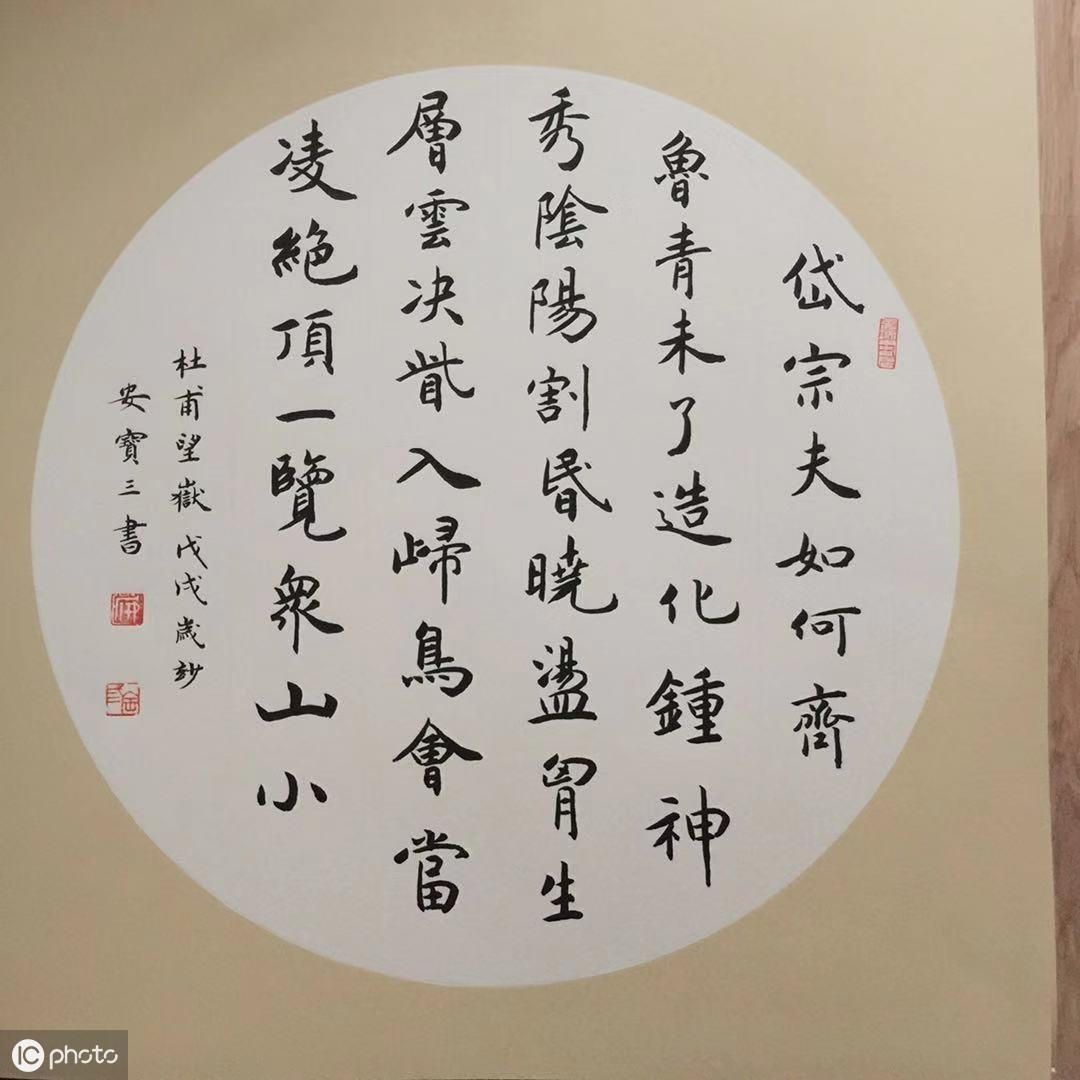 岱宗夫如何齊
魯青未了造化鍾神
秀陰陽割昏曉盪胷生
層雲决眥入歸鳥會當
凌絕頂一覽衆山小
杜甫望嶽戊戌歲玅
安寶三書
IC photo